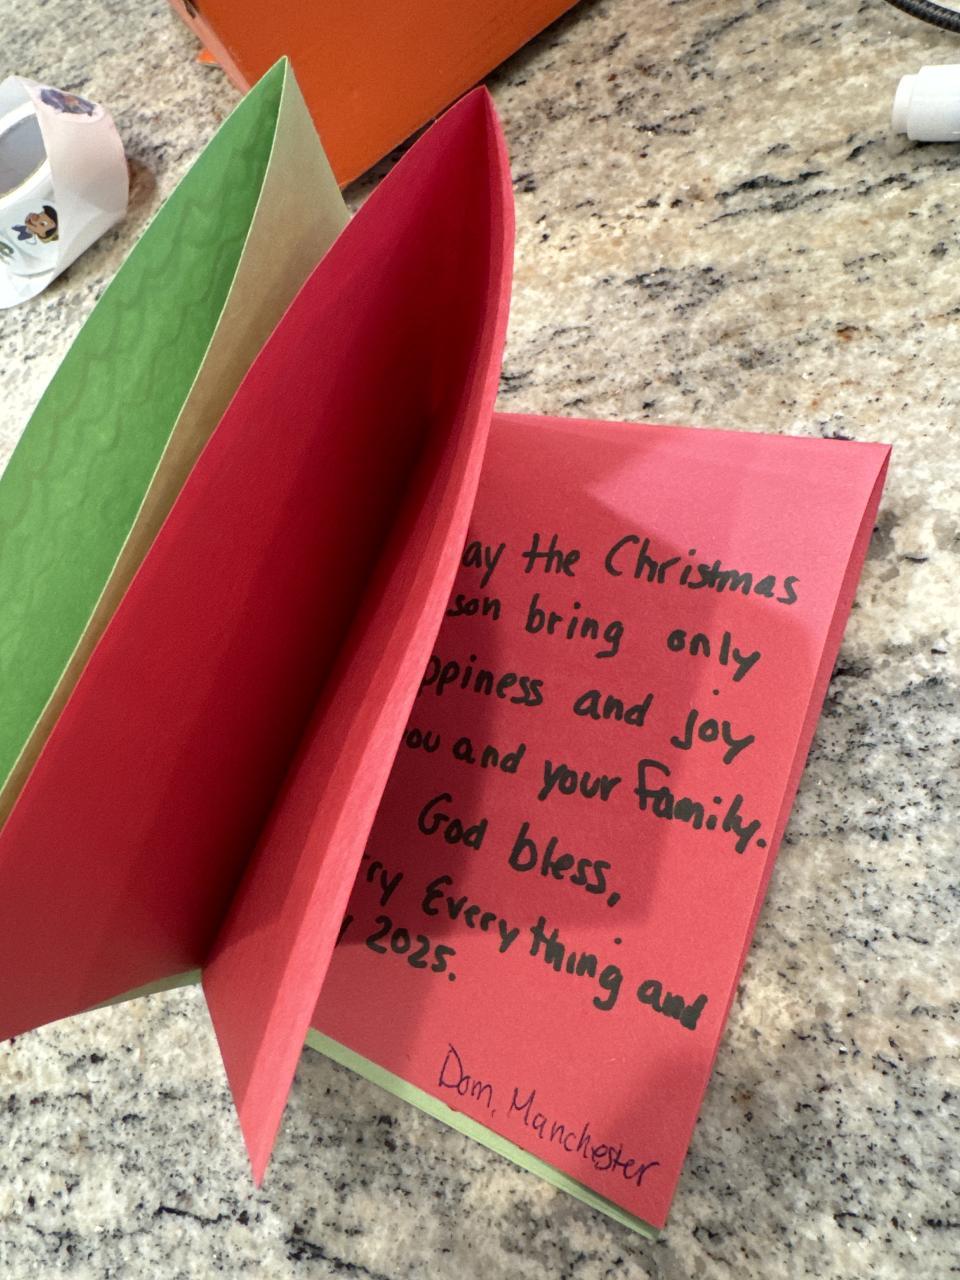 ay the Christmas
son bring only
ppiness and joy
ou and your Family.
God bless,
ry Everything and
2025.
Dom, Manchester